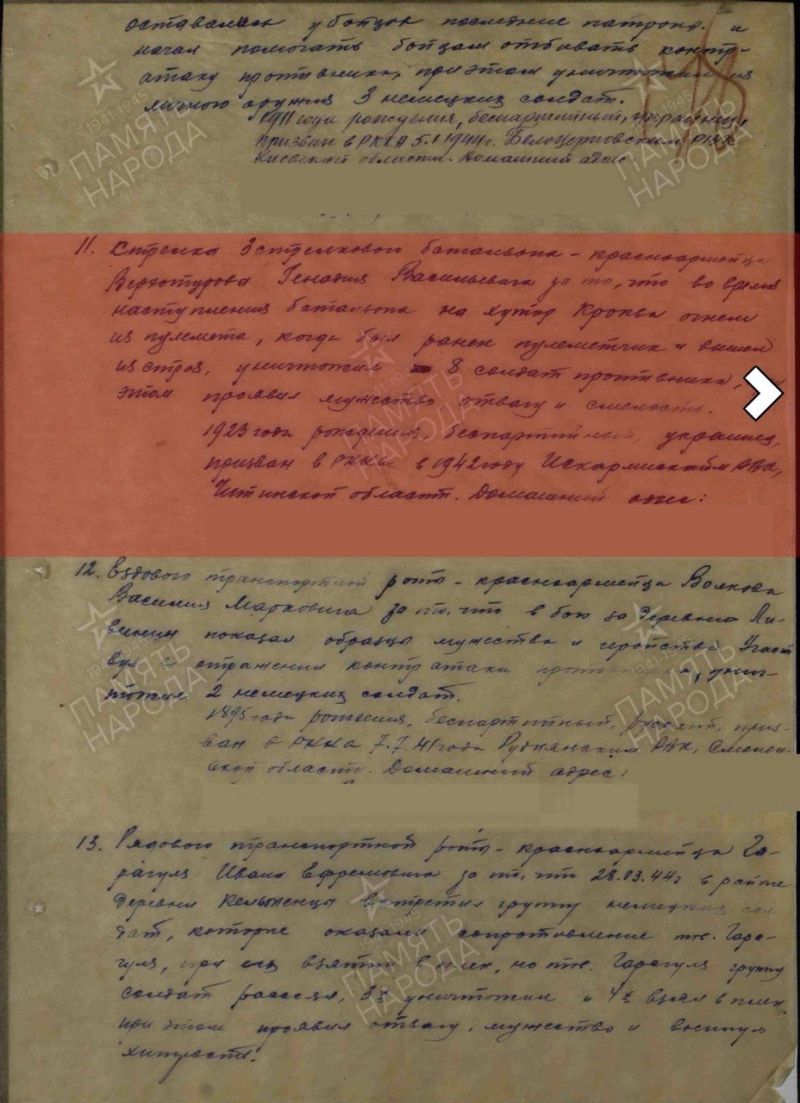 оставались у бойцов последние патроны и
начал помогать бойцам отбивать контр-
атаку противника, при этом уничтожил из
личного оружия 3 немецких солдат.
1911 года рождения, беспартийный, украинец,
призван в РККА 5.1.1944г. Белоцерковским РВК
Киевской области. Домашний адрес:
11. Стрелка 3 стрелкового батальона - красноармейца
Верхотурова Генадия Васильевича за то, что во время
наступления батальона на хутор Кроква огнем
из пулемета, когда был ранен пулеметчик и вышел
из строя, уничтожил 8 солдат противника,
этом проявил мужество отвагу и смелость.
1923 года рождения, беспартийный, украинец,
призван в РККА в 1942 году РВК,
Читинской области. Домашний адрес:
12. Ездового транспортной роты - красноармейца Волкова
Василия Марковича за то, что в бою за деревню
показал образцы мужества и геройства. Участ
вуя в отражении контратаки противника, унич-
тожил 2 немецких солдат.
1895 года рождения, беспартийный, русский, приз-
ван в РККА 7.7.41 года Руднянским РВК, Смолен-
ской области. Домашний адрес:
13. Рядового транспортной роты - красноармейца Га-
рагуля Ивана Ефремовича за то, что 28.03.44г в районе
деревни Кельменцы встретил группу немецких сол
дат, которые оказали сопротивление тов. Гара-
гуля, при взятии в плен, но тов. Гарагуля группу
солдат рассеял, 3х уничтожил и 4х взял в плен,
при этом проявил отвагу, мужество и военную
хитрость.
ПАМЯТЬ
НАРОДА
1941-1945